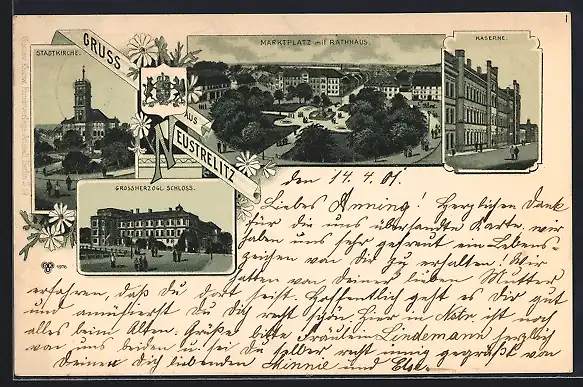 STADTKIRCHE.
GRUSS
AUS
NEUSTRELITZ
MARKTPLATZ mit RATHHAUS.
KASERNE.
GROSSHERZOGL. SCHLOSS.
den 14.4.01.
Liebes Änning! Herzlichen Dank
für die uns übersandte Karte. wir
haben uns sehr gefreut ein Lebens-
zeichen von Dir zu erhalten! Wir
hatten von Deiner lieben Mutter
erfahren, daß Du dort seist. Hoffentlich geht es Dir gut
und amüsierst Du Dich recht schön. Hier in ist noch
alles beim Alten. Grüße bitte Fräulein Lindemann herzlich
von uns beiden u. sei Du selber recht innig gegrüßt von
Deinen Dich liebenden Minnie und Else.